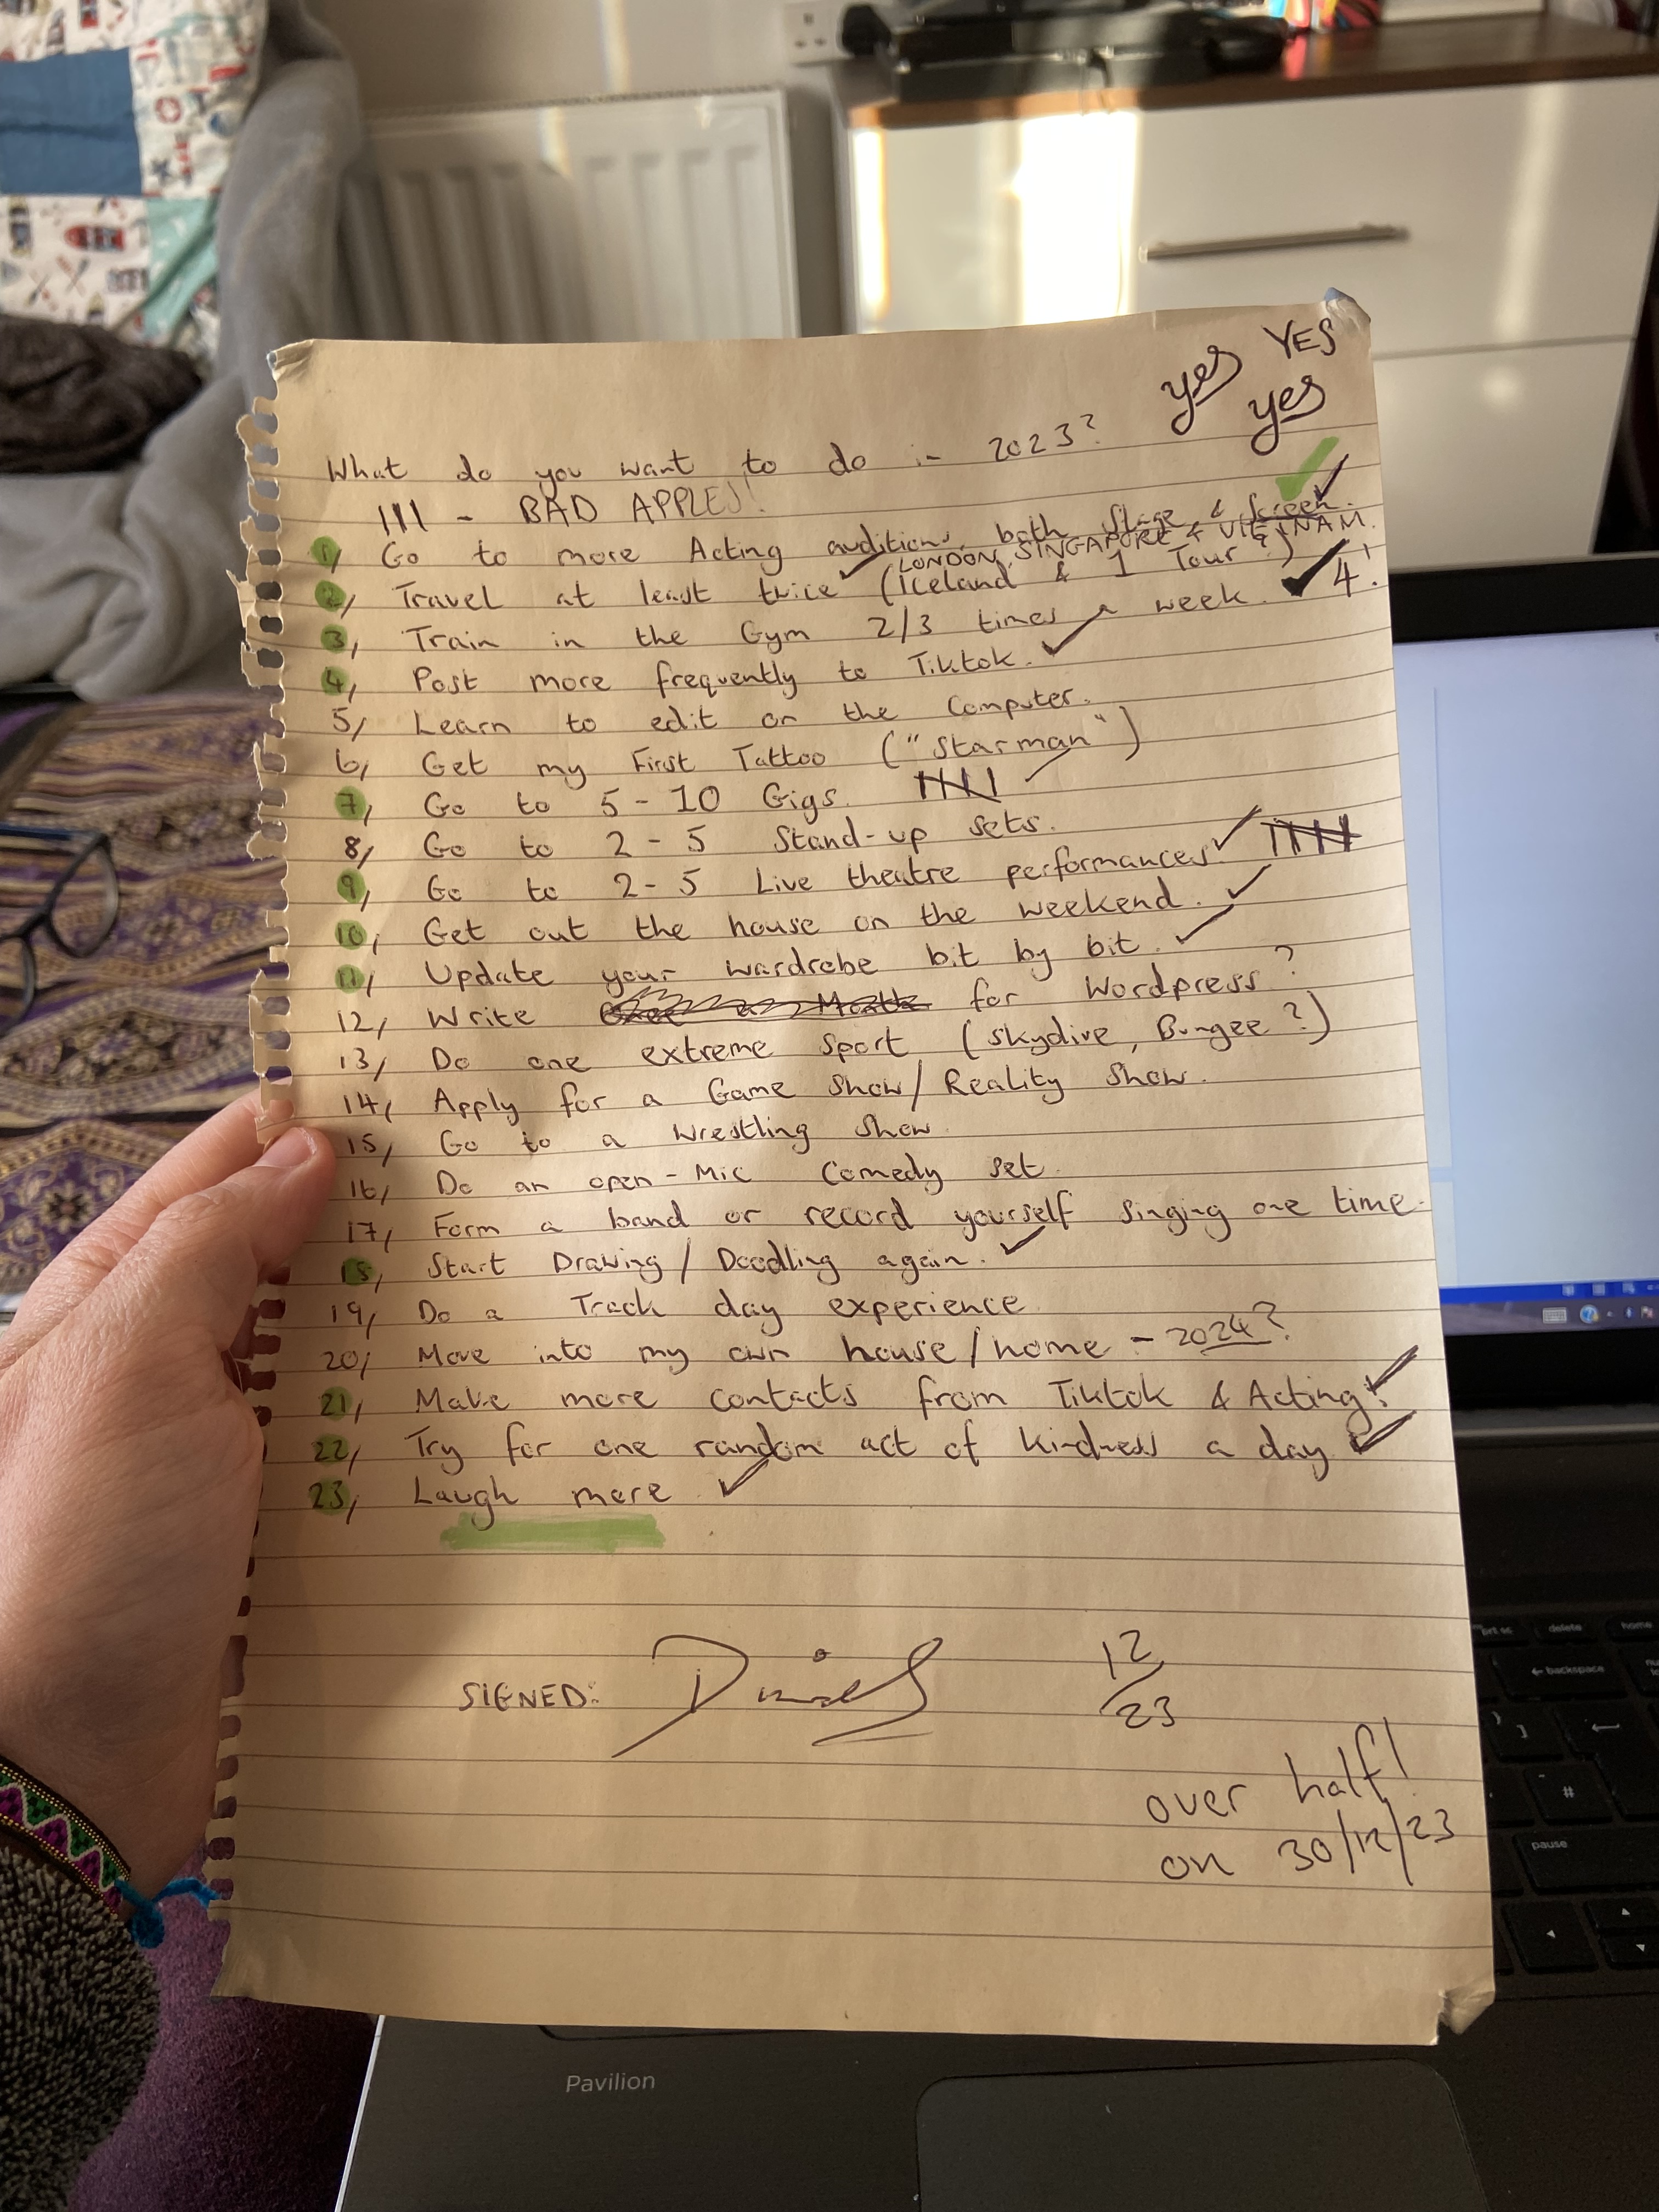 yes YES
yes
What do you want to do in 2023?
III - BAD APPLES!
1, Go to more Acting auditions, both Stage & Screen.
LONDON, SINGAPORE & VIETNAM.
2, Travel at least twice (Iceland & 1 Tour?)
3, Train in the Gym 2/3 times a week. 4!
4, Post more frequently to Tiktok.
5, Learn to edit on the Computer.
6, Get my First Tattoo ("Starman")
7, Go to 5-10 Gigs.
8, Go to 2-5 Stand-up sets.
9, Go to 2-5 Live theatre performances
10, Get out the house on the weekend.
11, Update your wardrobe bit by bit.
12, Write Once a Month for Wordpress?
13, Do one extreme sport (Skydive, Bungee?)
14, Apply for a Game Show/Reality Show.
15, Go to a Wrestling Show
16, Do an open-Mic Comedy set.
17, Form a band or record yourself singing one time.
18, Start Drawing/Doodling again.
19, Do a Track day experience
20, Move into my own house/home - 2024?
21, Make more contacts from Tiktok & Acting!
22, Try for one random act of kindness a day
23, Laugh more
SIGNED: 12/23
over half!
on 30/12/23
prt sc delete home
backspace
#
pause
Pavilion